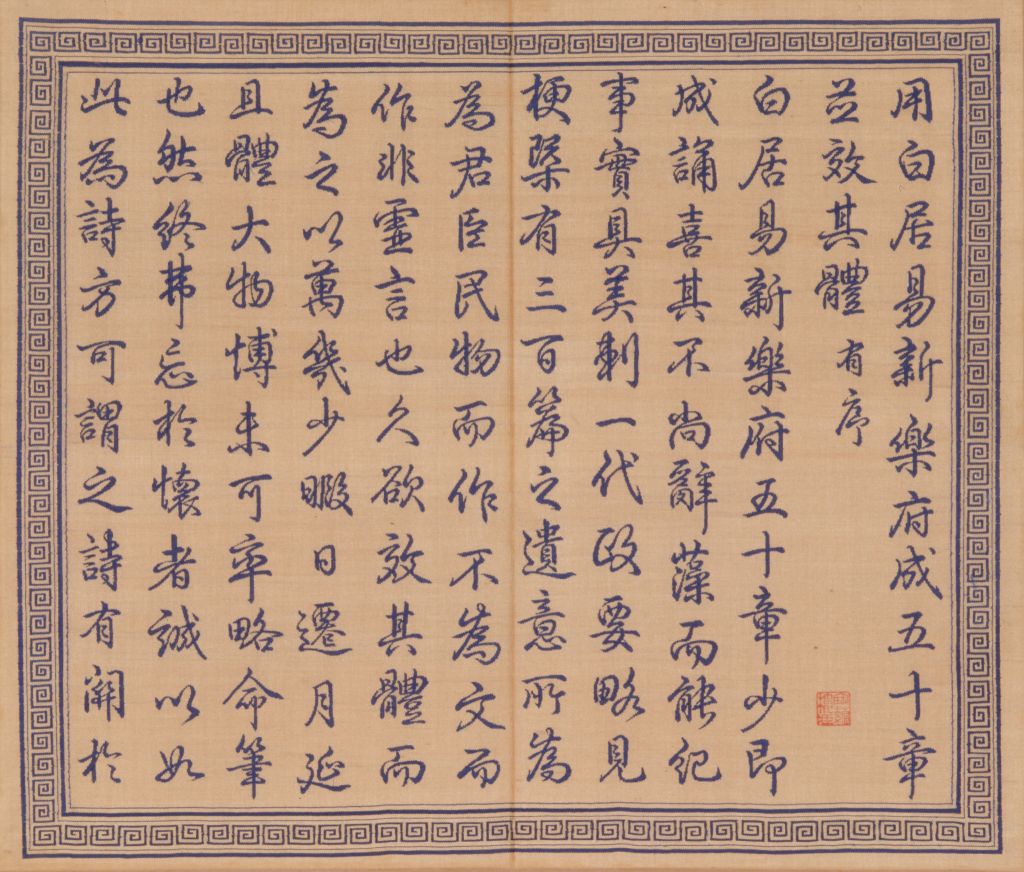 用白居易新樂府成五十章
並效其體有序
白居易新樂府五十章少即
成誦喜其不尚辭藻而能紀
事實具美刺一代政要略見
梗槩有三百篇之遺意所為
為君臣民物而作不為文而
作非靈言也久欲效其體而
為之以萬幾少暇日遷月延
且體大物博未可率略命筆
也然終弗忘於懷者誠以如
此為詩方可謂之詩有關於